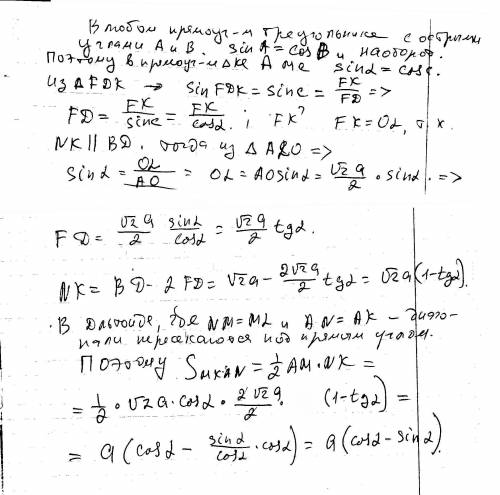 В любом прямоуг-м треугольнике с острыми
углами A и B. sin A = cos B и наоборот.
Поэтому в прямоуг-м ∆ке A ме sinα = cos e.
Из ∆FDK → sin FDK = sin e = FK/FD =>
FD = FK/sin e = FK/cosα ; FK? FK = OL, т.к.
NK || BD. тогда из ∆ALO =>
sinα = OL/AO = OL = AO sinα = √2 a/2 · sinα. =>
FD = √2 a/2 sinα/cosα = √2 a/2 tgα.
NK = BD - 2FD = √2 a - 2√2 a/2 tgα = √2 a(1-tgα)
. В дельтоиде, где NM = ML и AN = AK - диаго-
нали пересекаются под прямым углом.
Поэтому S MKAN = 1/2 AM · NK =
= 1/2 · √2 a · cosα · 2√2 a/2 (1-tgα) =
= a (cosα - sinα/cosα · cosα) = a (cosα - sinα)